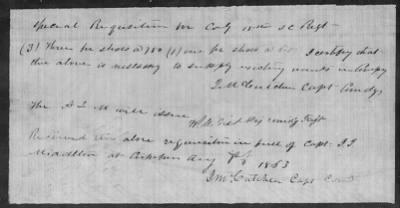 Special Requisition for Co G 10th SC Regt
(3) Three pr shoes @ 700 (1) one pr shoes @ I certify that
the above is necessary to supply existing wants in Compy
J. McCutchen Capt Comdg
The A. Q. M will issue
Maj comdg Regt
Received the above requisition in full of Capt. J J
Middleton at Aug 1863
J McCutchen Capt Comd